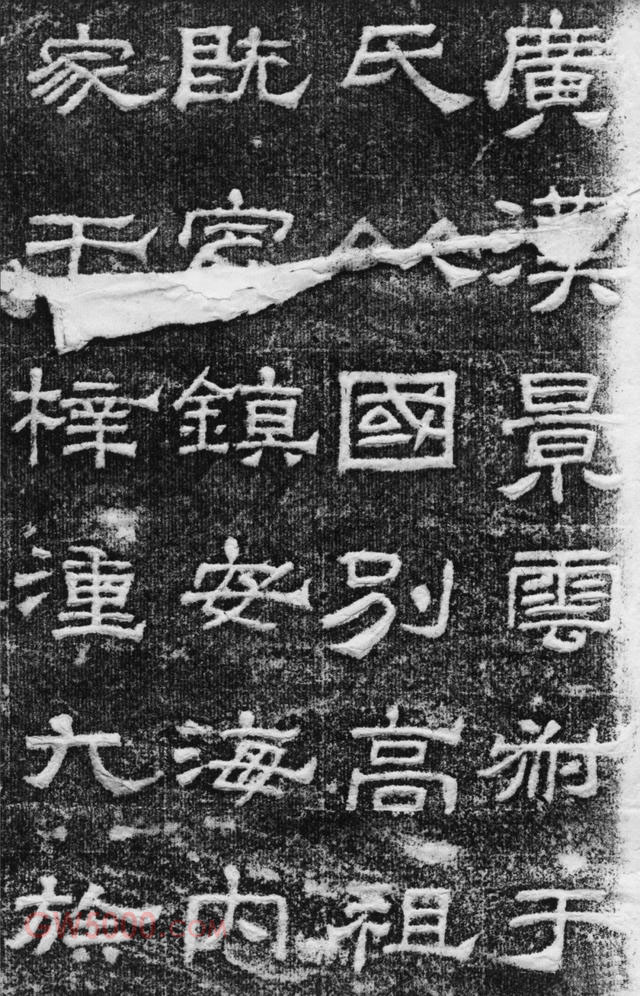 廣漢景雲叔于
氏以國別高祖
既定鎮安海內
家于梓潼九族
GW5000.COM